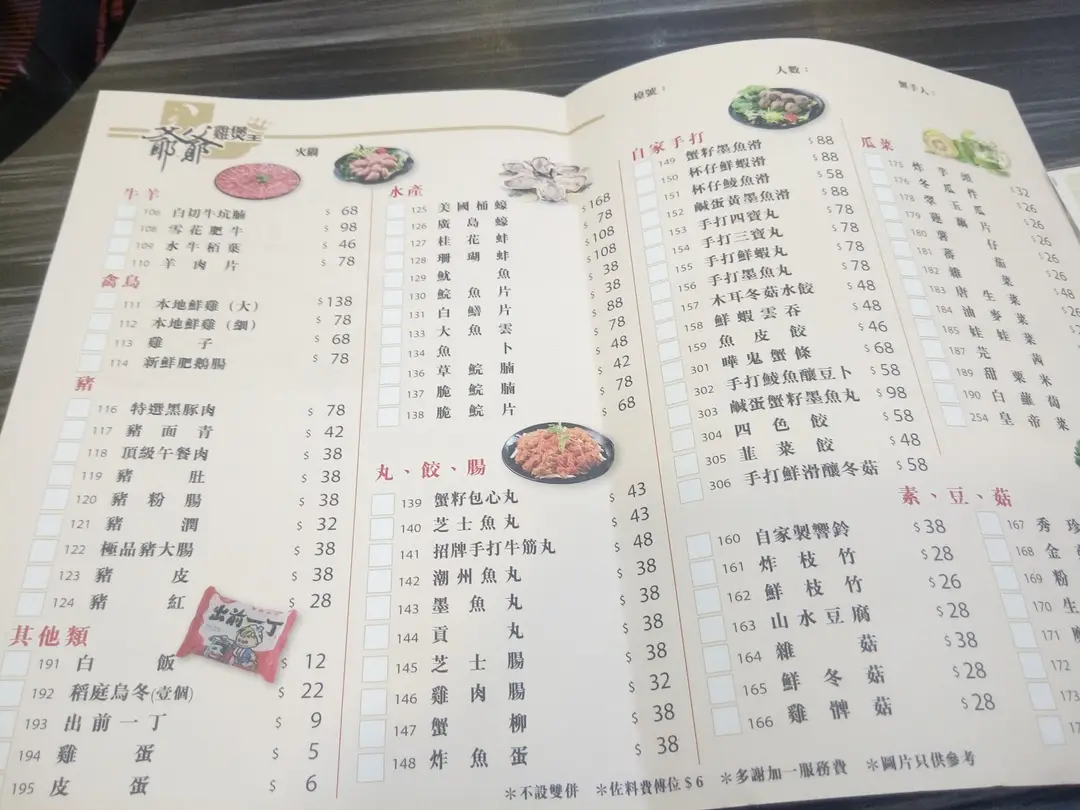 爺爺雞煲王
火鍋
檯號：
人數：
經手人：
牛羊
106 白切牛坑腩 $ 68
108 雪花肥牛 $ 98
109 水牛栢葉 $ 46
110 羊肉片 $ 78
禽鳥
111 本地鮮雞（大） $138
112 本地鮮雞（細） $ 78
113 雞子 $ 68
114 新鮮肥鵝腸 $ 78
豬
116 特選黑豚肉 $ 78
117 豬面青 $ 42
118 頂級午餐肉 $ 38
119 豬肚 $ 38
120 豬粉腸 $ 38
121 豬潤 $ 32
122 極品豬大腸 $ 38
123 豬皮 $ 38
124 豬紅 $ 28
出前一丁
其他類
191 白飯 $ 12
192 稻庭烏冬(壹個) $ 22
193 出前一丁 $ 9
194 雞蛋 $ 5
195 皮蛋 $ 6
水產
125 美國桶蠔 $168
126 廣島蠔 $ 78
127 桂花蚌 $108
128 珊瑚蚌 $108
129 魷魚 $ 38
130 鯇魚片 $ 38
131 白鱔片 $ 88
133 大魚雲 $ 78
134 魚卜 $ 48
136 草鯇腩 $ 42
137 脆鯇腩 $ 78
138 脆鯇片 $ 68
丸、餃、腸
139 蟹籽包心丸 $ 43
140 芝士魚丸 $ 43
141 招牌手打牛筋丸 $ 48
142 潮州魚丸 $ 38
143 墨魚丸 $ 38
144 貢丸 $ 38
145 芝士腸 $ 38
146 雞肉腸 $ 32
147 蟹柳 $ 38
148 炸魚蛋 $ 38
自家手打
149 蟹籽墨魚滑 $88
150 杯仔鮮蝦滑 $88
151 杯仔鯪魚滑 $58
152 鹹蛋黃墨魚滑 $88
153 手打四寶丸 $78
154 手打三寶丸 $78
155 手打鮮蝦丸 $78
156 手打墨魚丸 $78
157 木耳冬菇水餃 $48
158 鮮蝦雲吞 $48
159 魚皮餃 $46
301 嘩鬼蟹條 $68
302 手打鯪魚釀豆卜 $58
303 鹹蛋蟹籽墨魚丸 $98
304 四色餃 $58
305 韭菜餃 $48
306 手打鮮滑釀冬菇 $58
瓜菜
175 炸芋頭 $32
176 冬瓜件 $26
178 翠玉瓜 $26
179 蓮藕片 $26
180 薯仔 $26
181 番茄 $26
182 菜
183 唐生菜
184 油麥菜
185 娃娃菜
187 芫茜
189 甜粟米
190 白蘿蔔
254 皇帝菜
素、豆、菇
160 自家製響鈴 $38
161 炸枝竹 $28
162 鮮枝竹 $26
163 山水豆腐 $28
164 雜菇 $38
165 鮮冬菇 $28
166 雞髀菇 $28
167 秀珍
168 金
169 粉
170 生
171
172
173
＊不設雙併 ＊佐料費傳位$6 ＊多謝加一服務費 ＊圖片只供參考